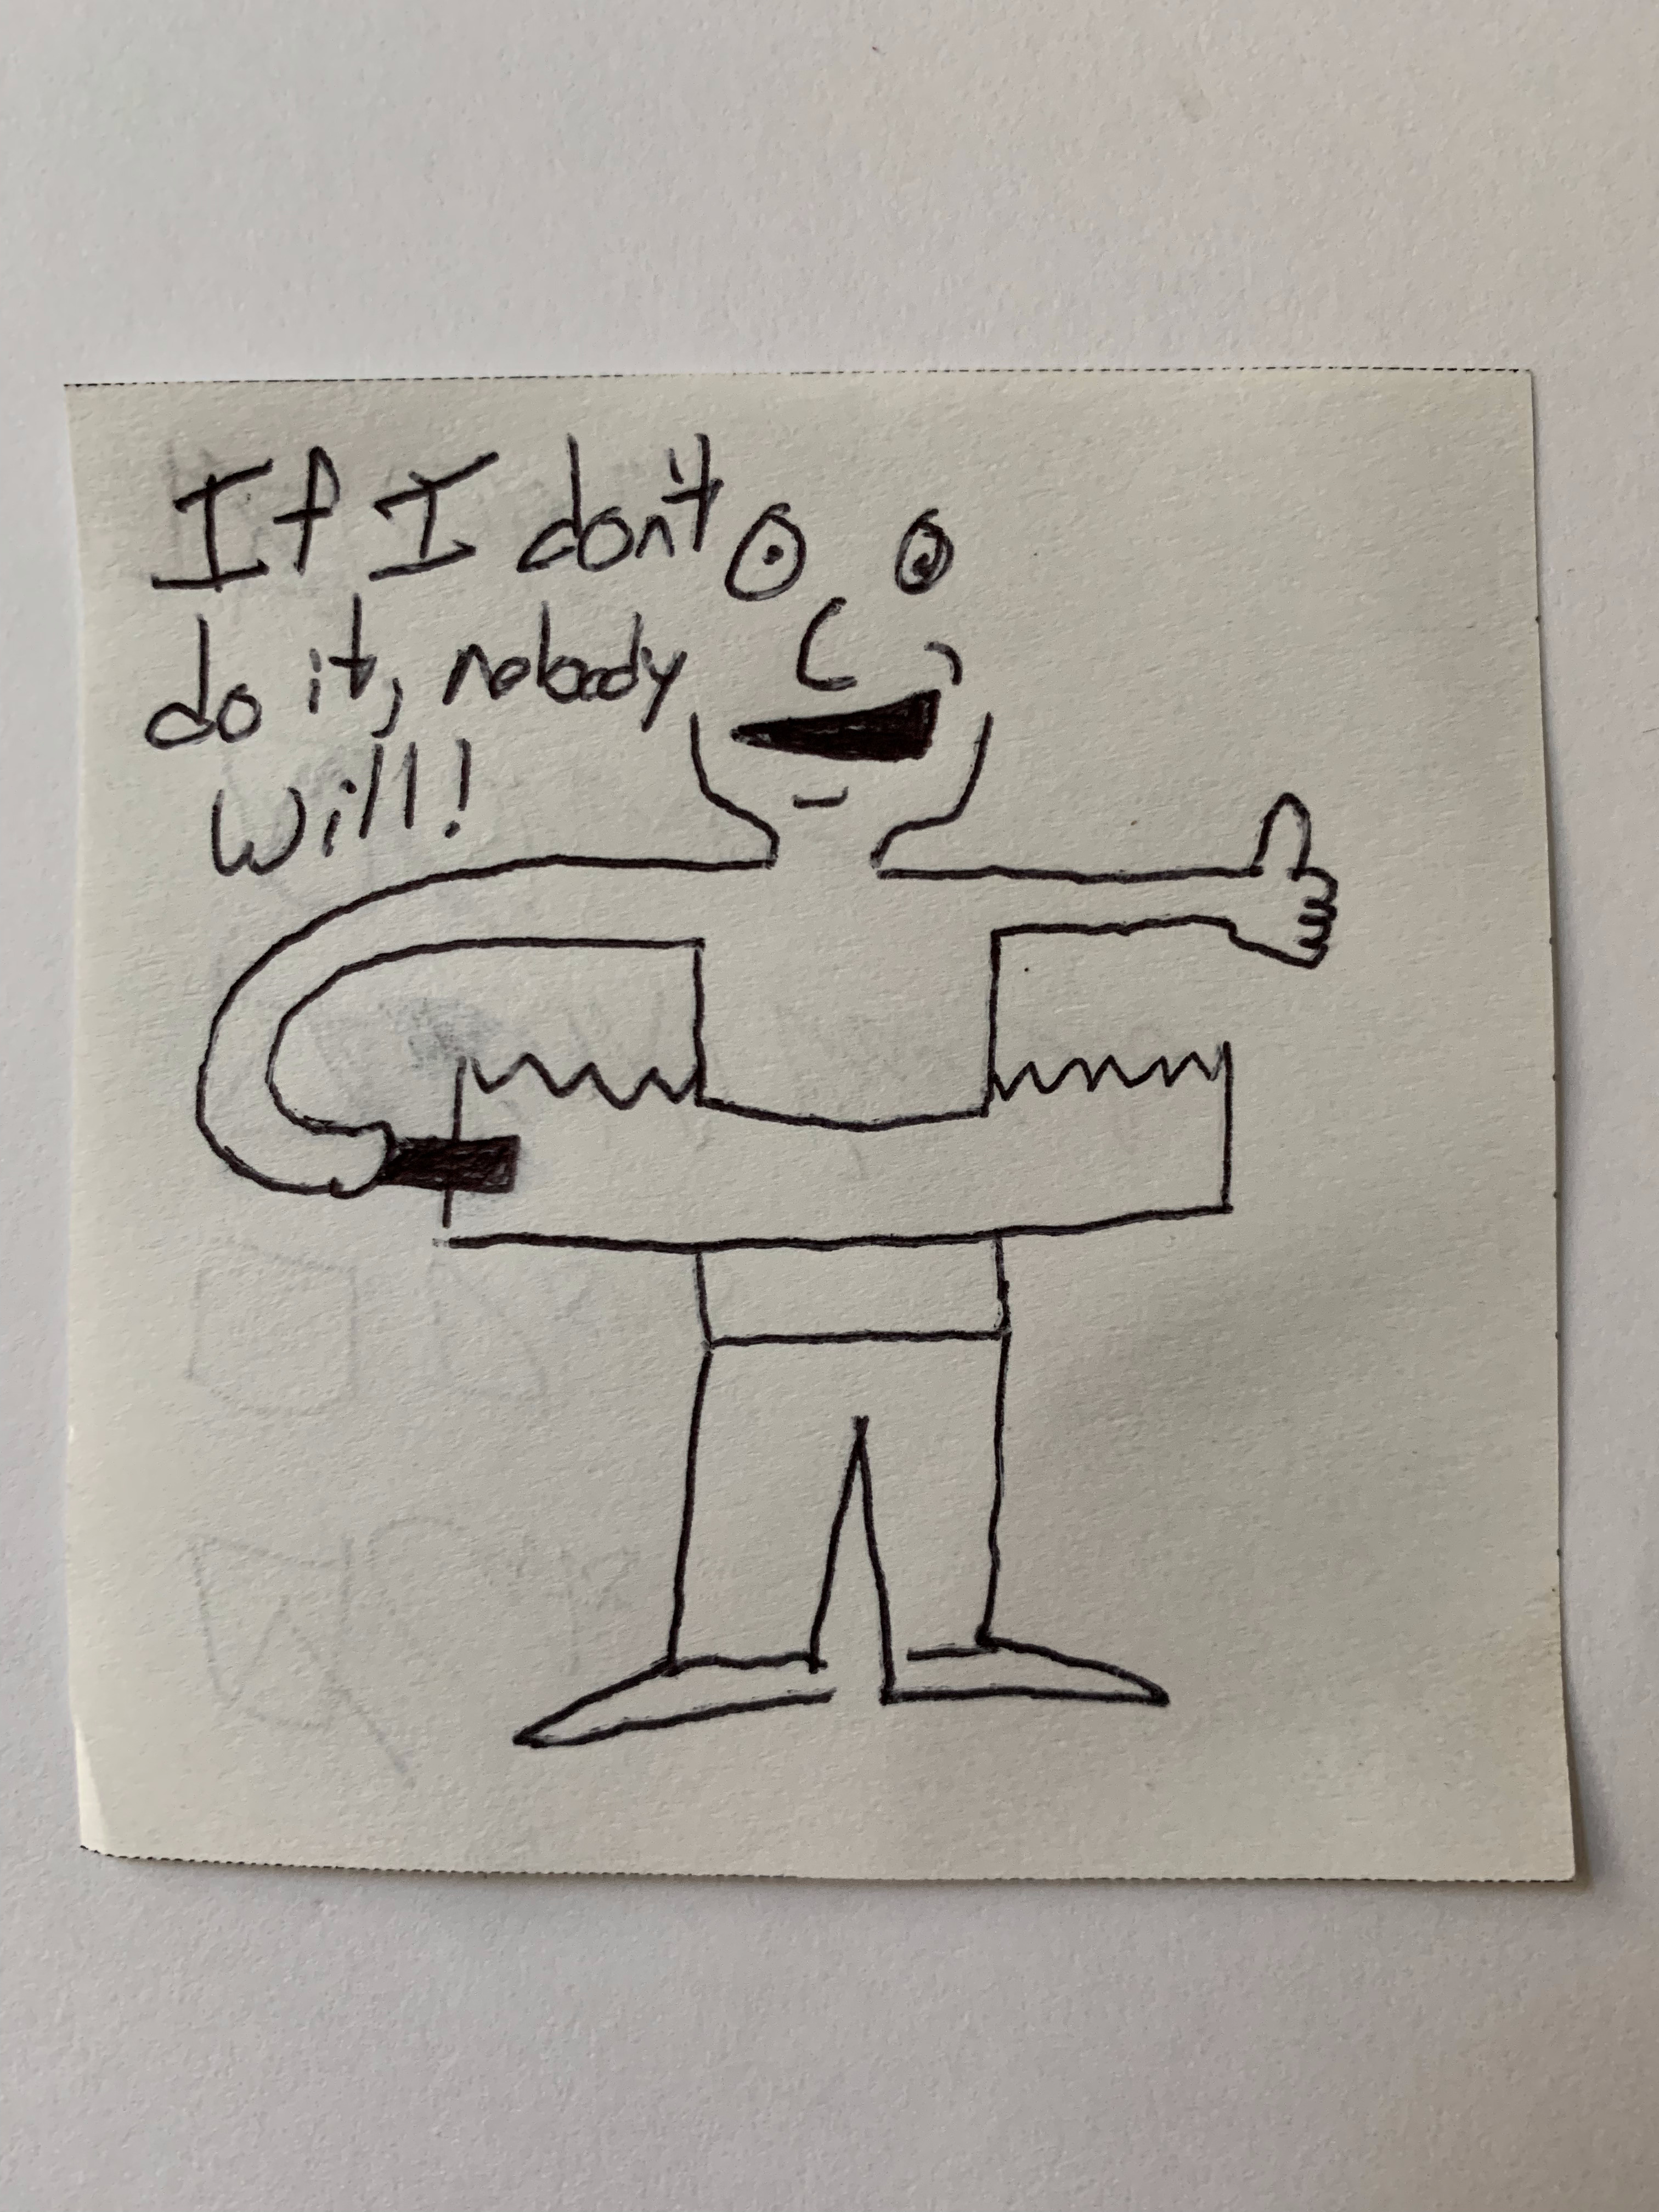 If I don't
do it, nobody
will!